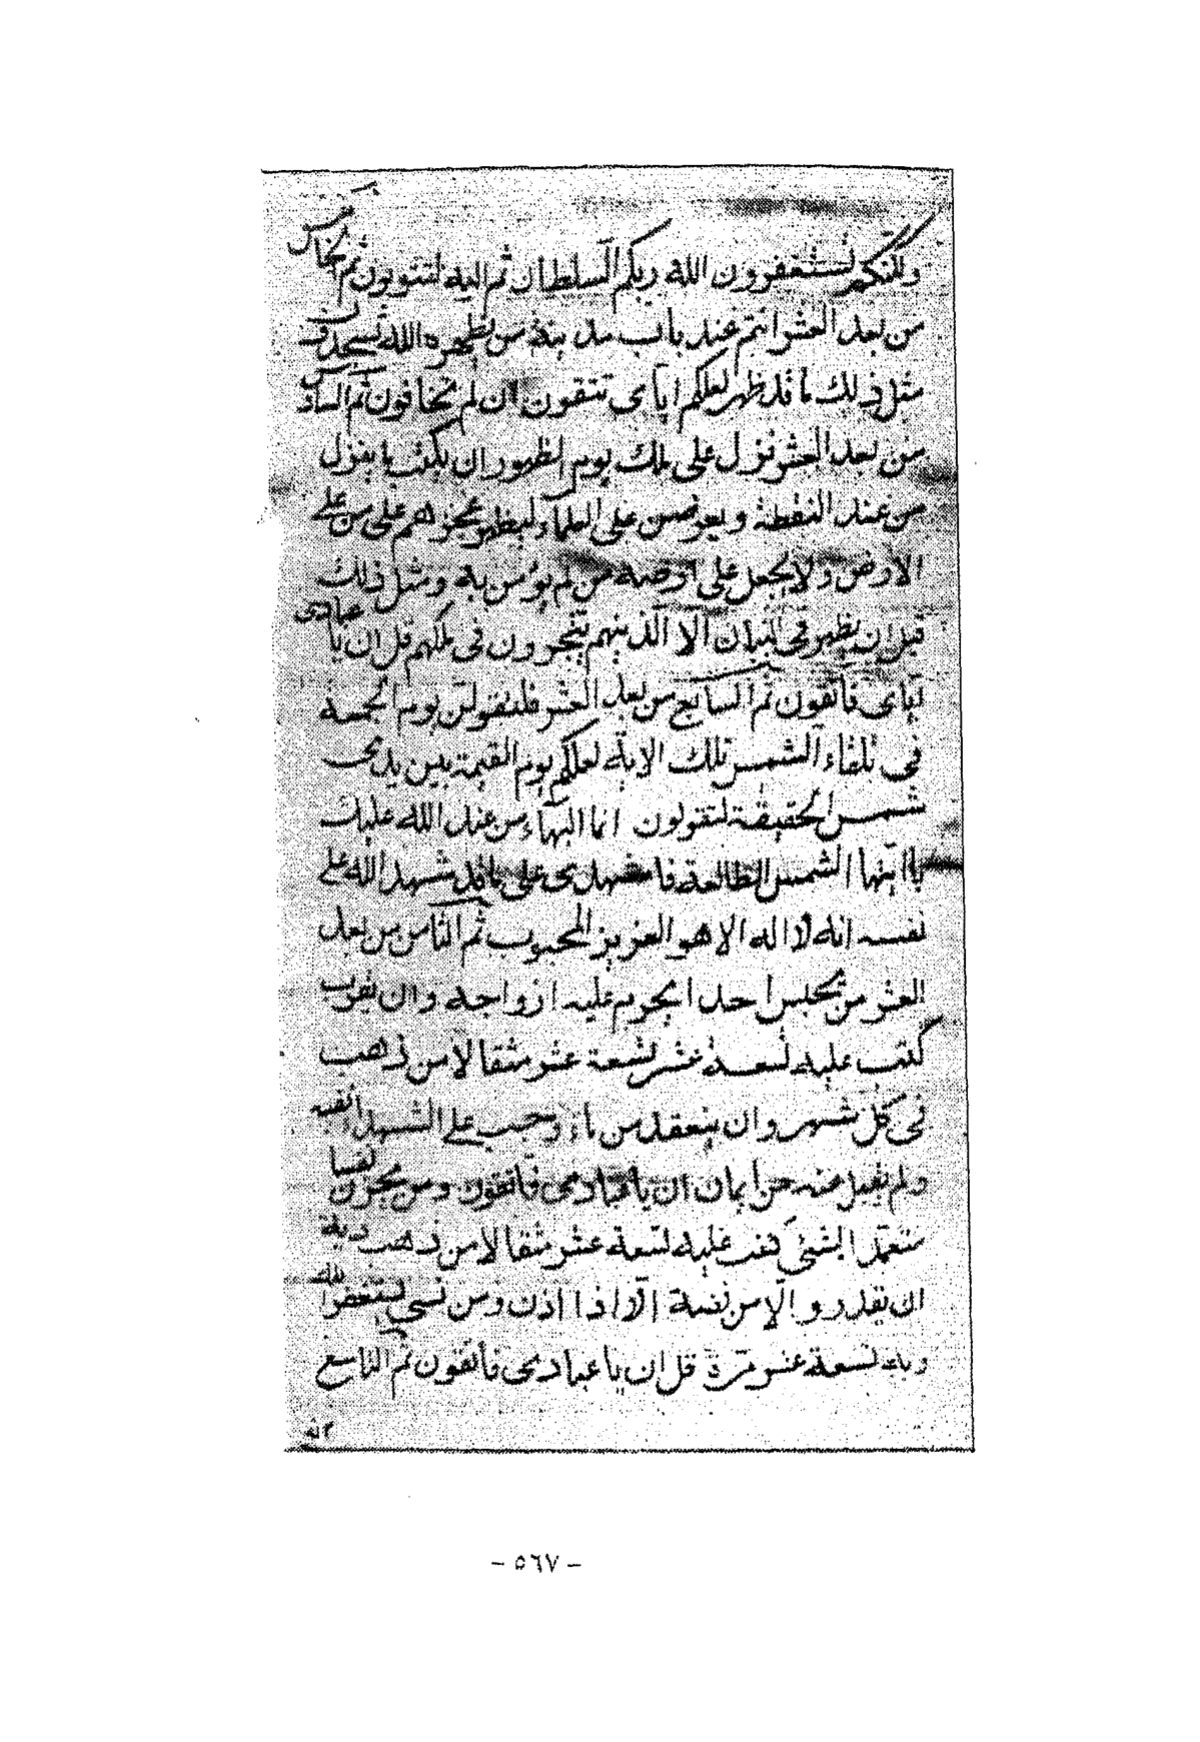 ولكنكم لتستغفرون الله ربكم السلطان ثم اليه لتتوبون ثم الخامس
من بعد العشر انتم عند باب مدينة من يظهره الله تسجدون
مثل ذلك ما قد ظهر لعلكم اياى تتقون ان لم تخافون ثم السادس
من بعد العشر نزل على ملك يوم الظهور ان يكتب ما ينزل
من عند النقطة و يعرضن على العلماء ليظهر عجزهم على من على
الارض ولا يجعل على ارضه من لم يؤمن به ومثل ذلك
قبل ان يظهر فى البيان الا الذينهم يتجرون فى ملكهم قل ان يا عبادى
اياى فاتقون ثم السابع من بعد العشر فلتقولن يوم الجمعة
فى تلقاء الشمس تلك الاية لعلكم يوم القيمة بين يدى
شمس الحقيقة لتقولون انما البهاء من عند الله عليك
يا ايتها الشمس الطالعة فاشهدى على ما قد شهد الله على
نفسه انه لا اله الا هو العزيز المحبوب ثم الثامن من بعد
العشر من يحبس احدا يحرم عليه ازواجه وان يقرب
كتب عليه تسعة عشر تسعة عشر مثقالا من ذهب
فى كل شهر وان ينعقد من ماء وجب على الشهداء نفيه
ولم يقبل منه من ايمان ان يا عبادى فاتقون ومن يحزن نفسا
متعمدا بشئ كتب عليه تسعة عشر مثقالا من ذهب دية
ان يقدر و الا من فضة الا اذا اذن ومن نسى ليستغفر الله
ربه تسعة عشر مرة قل ان يا عبادى فاتقون ثم التاسع
- ٥٦٧ -